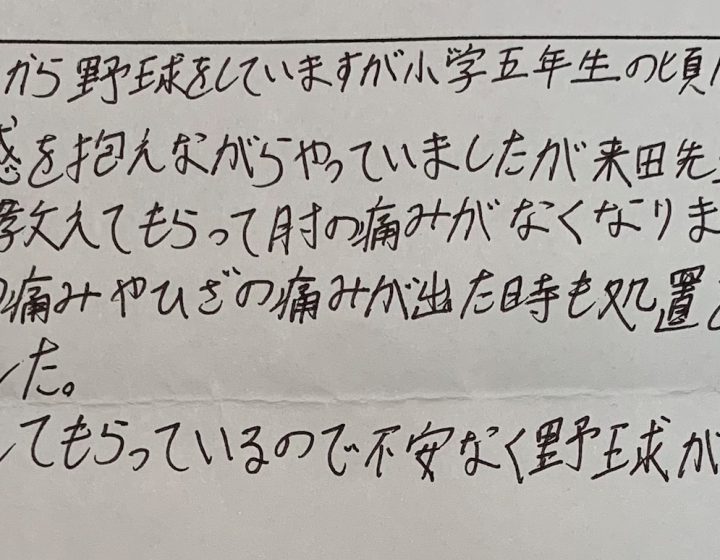 から野球をしていますが小学五年生の頃
感を抱えながらやっていましたが来田先
教えてもらって肘の痛みがなくなりま
の痛みやひざの痛みが出た時も処置
した。
してもらっているので不安なく野球が